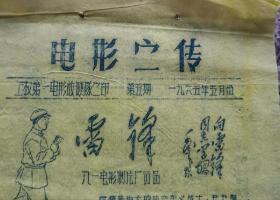 电影宣传
工农第一电影放映队之印 第五期 一九六五年五月份
雷锋
向雷锋同志学习
毛泽东
八一电影制片厂出品